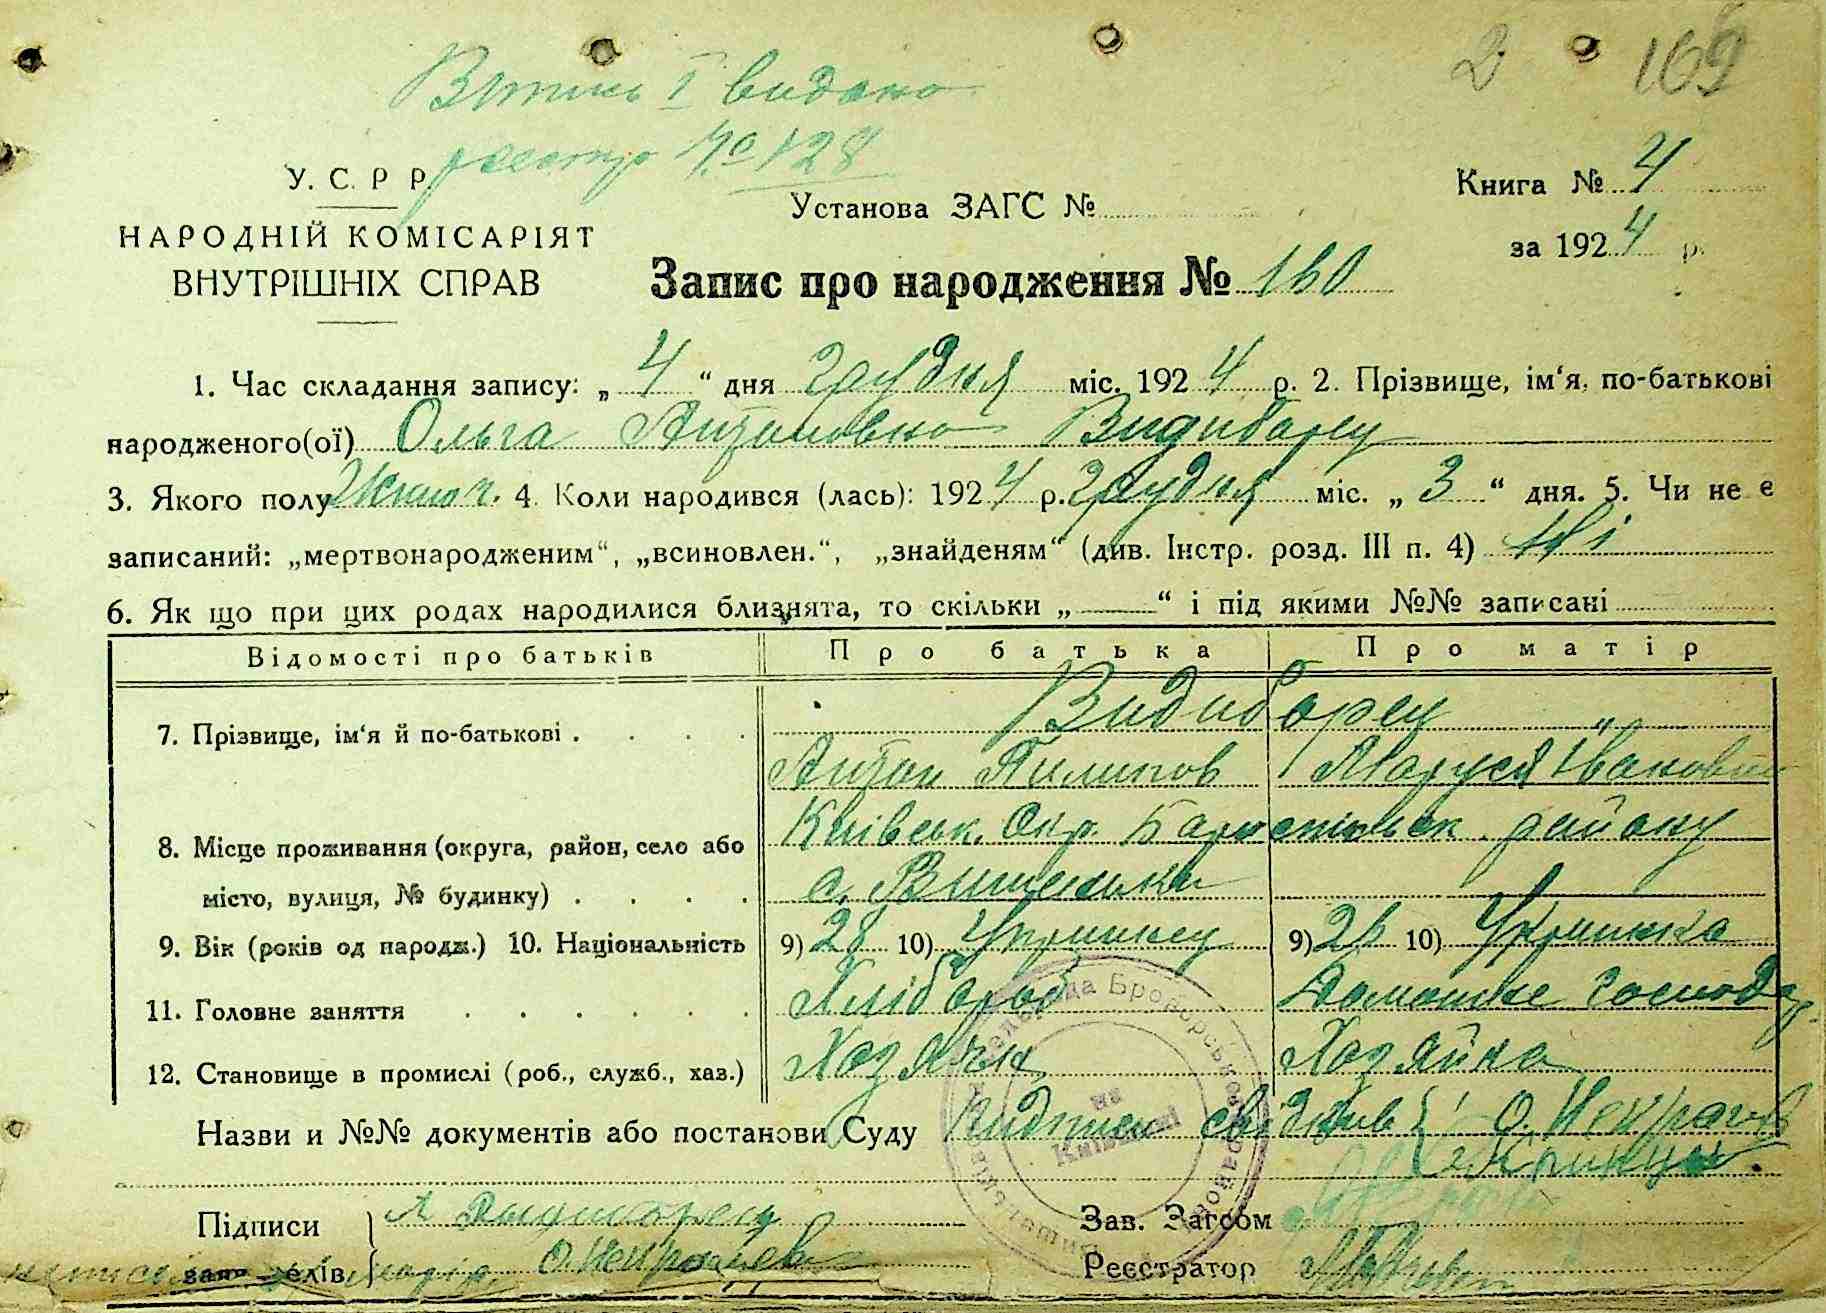 2 169
Витись І видано
реєстр № 128
У. С. Р Р.
НАРОДНІЙ КОМІСАРІЯТ
ВНУТРІШНІХ СПРАВ
Установа ЗАГС №
Книга № 4
за 1924 р.
Запис про народження № 160
1. Час складання запису: „ 4 “ дня грудня міс. 1924 р. 2. Прізвище, ім‘я, по-батькові
народженого(ої) Ольга Антоновна Видиборец
3. Якого полу жиноч. 4. Коли народився (лась): 1924 р. грудня міс. „ 3 “ дня. 5. Чи не є
записаний: „мертвонародженим“, „всиновлен.“, „знайденям“ (див. Інстр. розд. III п. 4) Ні
6. Як що при цих родах народилися близнята, то скільки „ — “ і під якими №№ записані
Відомості про батьків Про батька Про матір
7. Прізвище, ім‘я й по-батькові . . . . Видиборец „
Антон Пилипов Маруся Івановна
8. Місце проживання (округа, район, село або Київськ. Окр. Бариспільск району
місто, вулиця, № будинку) . . . . с. Вишеньки
9. Вік (років од народж.) 10. Національність 9) 28 10) Украинец 9) 26 10) Украинка
11. Головне заняття . . . . . . Хлібороб Домашне господар.
12. Становище в промислі (роб., служб., хаз.) Хозяїн Хозяйка
Назви и №№ документів або постанови Суду Пидписи свідків О. Некрасов
Підписи А Видиборец Зав. Загсом
заявителів О. Некрасов Реєстратор